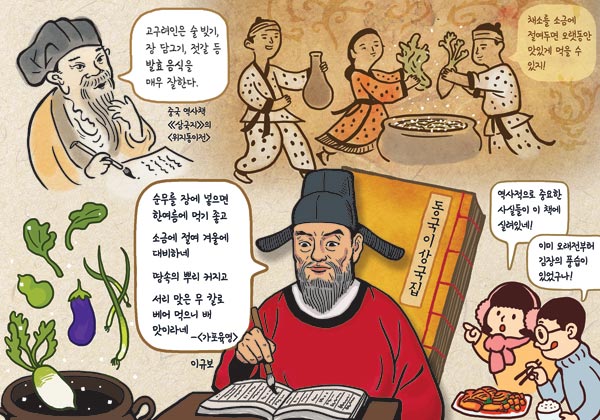 고구려인은 술 빚기,
장 담그기, 젓갈 등
발효 음식을
매우 잘한다.
중국 역사책
《삼국지》의
〈위지동이전〉
채소를 소금에
절여두면 오랫동안
맛있게 먹을 수
있지!
순무를 장에 넣으면
한여름에 먹기 좋고
소금에 절여 겨울에
대비하네
땅속의 뿌리 커지고
서리 맞은 무 칼로
베어 먹으니 배
맛이라네
-〈가포육영〉
이규보
동국이상국집
역사적으로 중요한
사실들이 이 책에
실려있네!
이미 오래전부터
김장의 풍습이
있었구나!